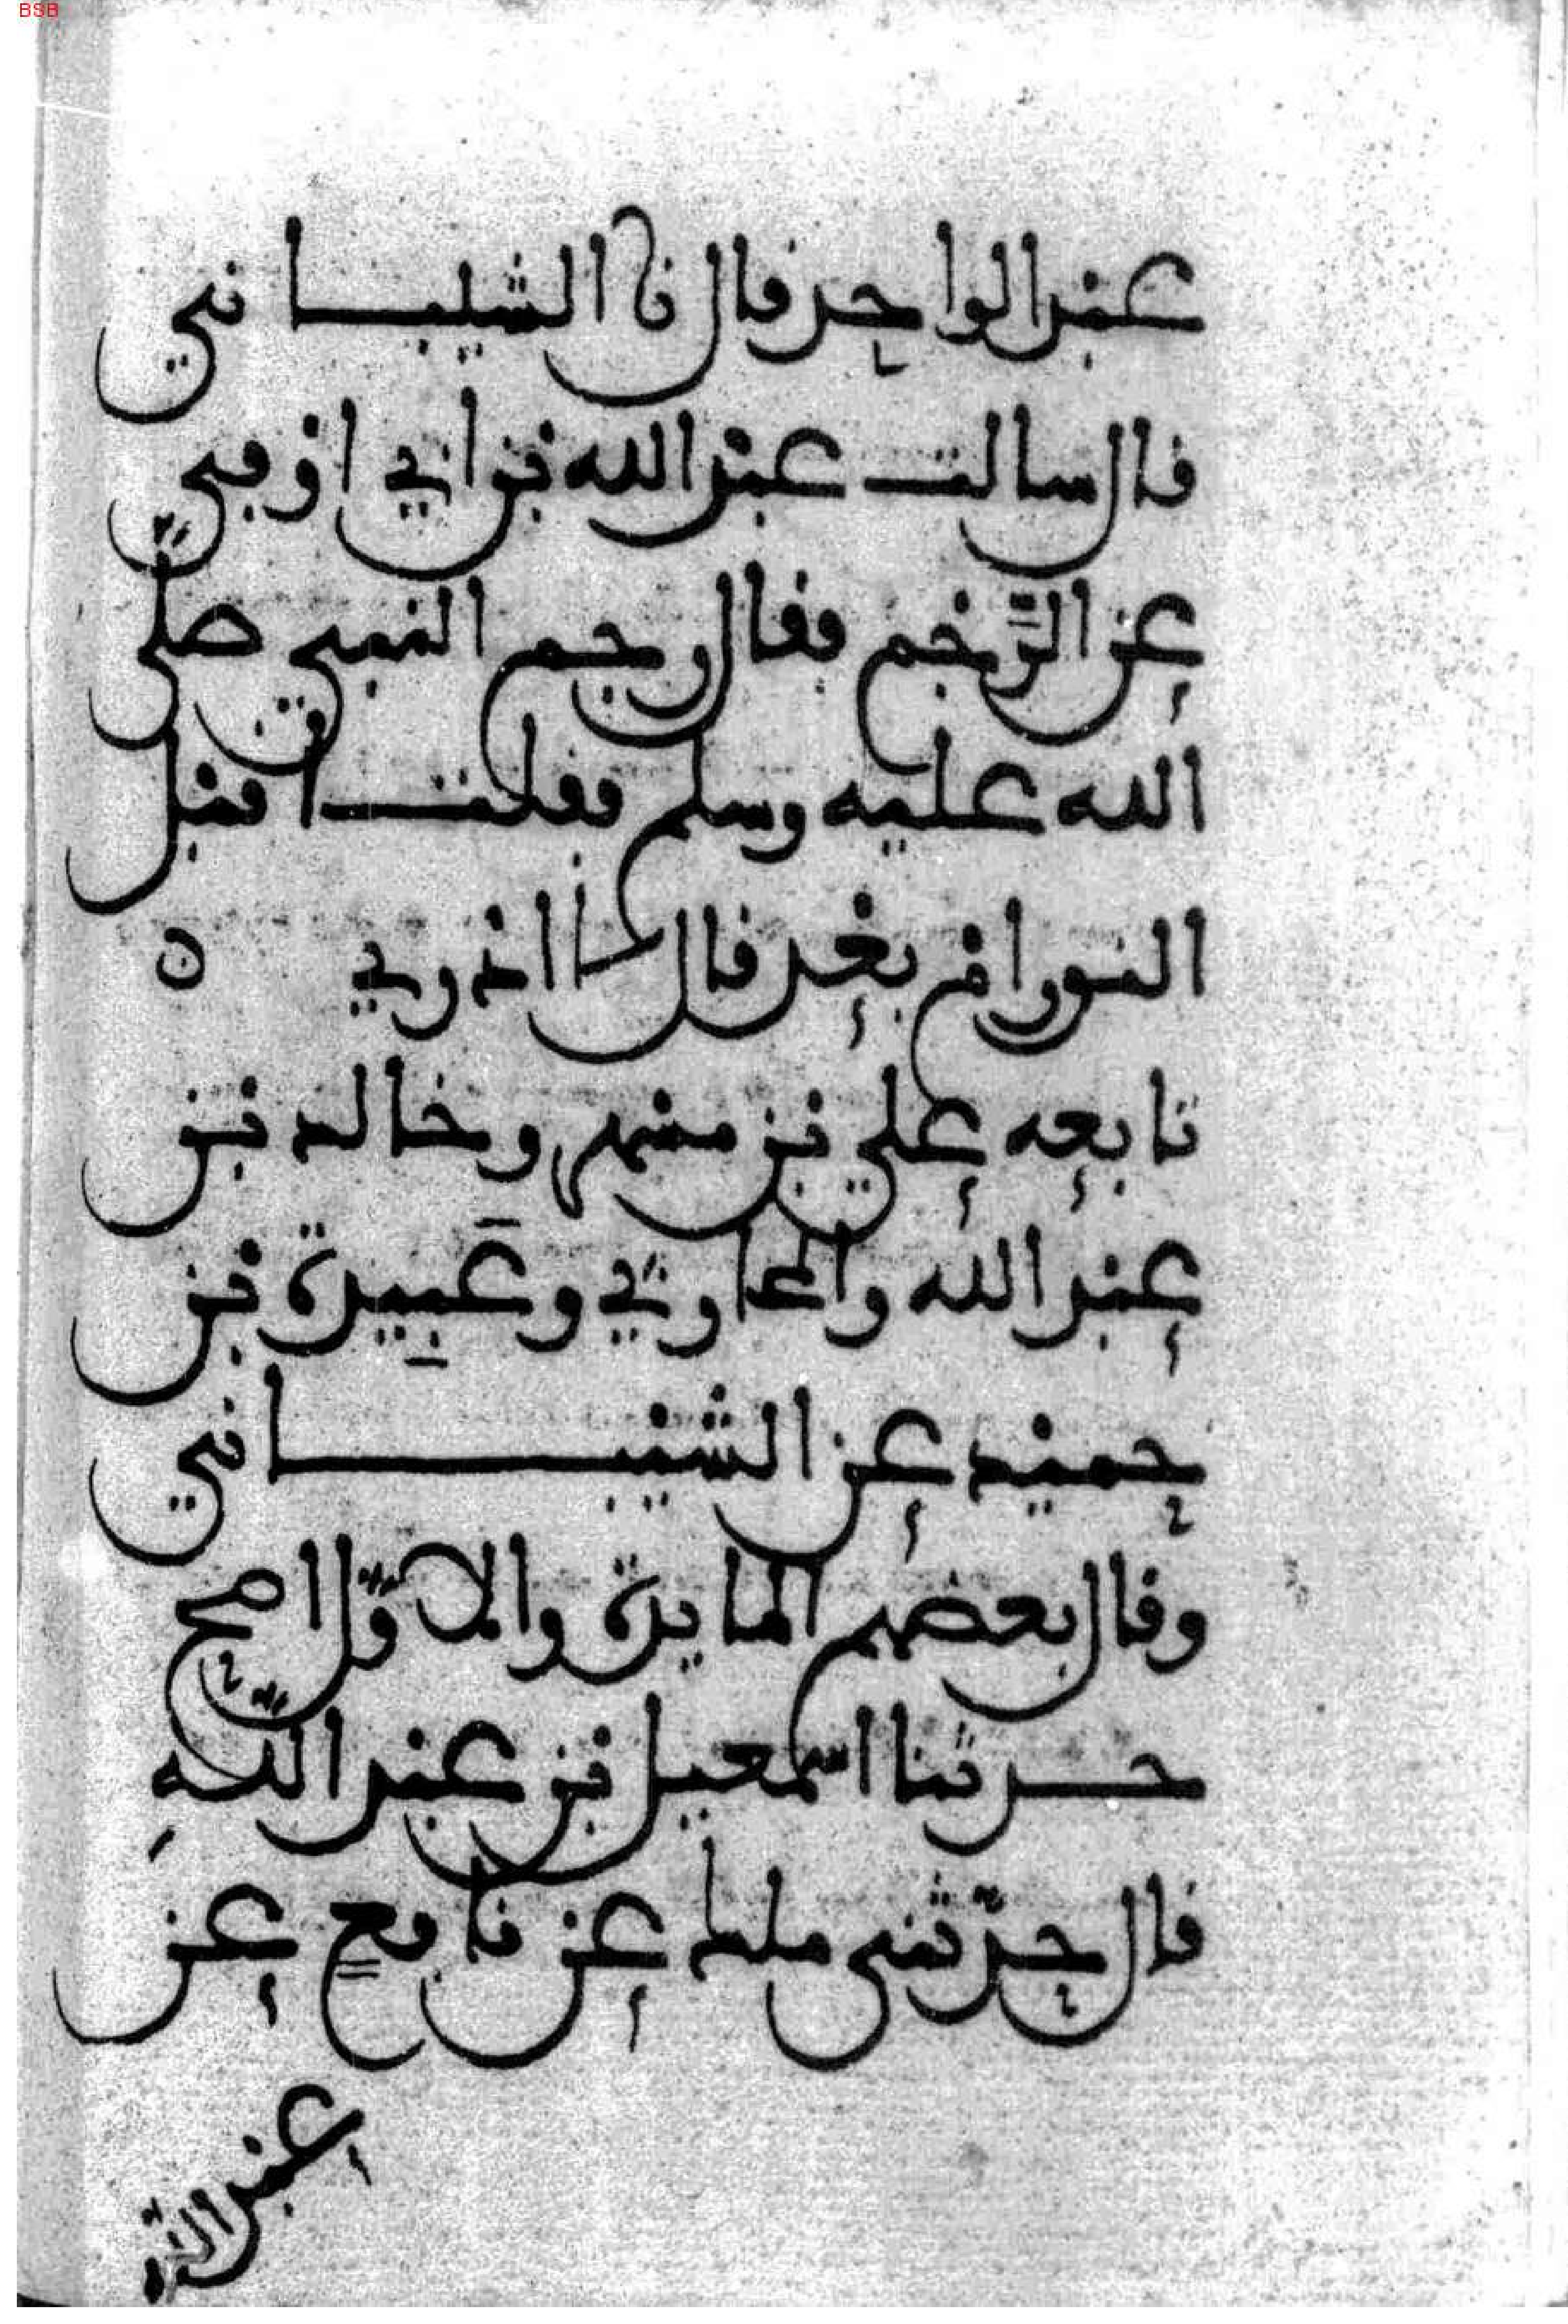 BSB
عبد الواحد قال نا الشيباني
قال سالت عبد الله بن ابي اوفى
عن الرَّجم فقال رجم النبي صلّى
الله عليه وسلم فقلت اقبل
النور ام بعد قال لا ادري ه
تابعه علي بن مسهر وخالد بن
عبد الله والمحاربي وعَبِيدة بن
حميد عن الشيباني
وقال بعضهم المايدة والاوّل اصح
حدثنا اسمعيل بن عبد اللّهِ
قال حدّثني ملك عن نافعٍ عن
عبد اللّه